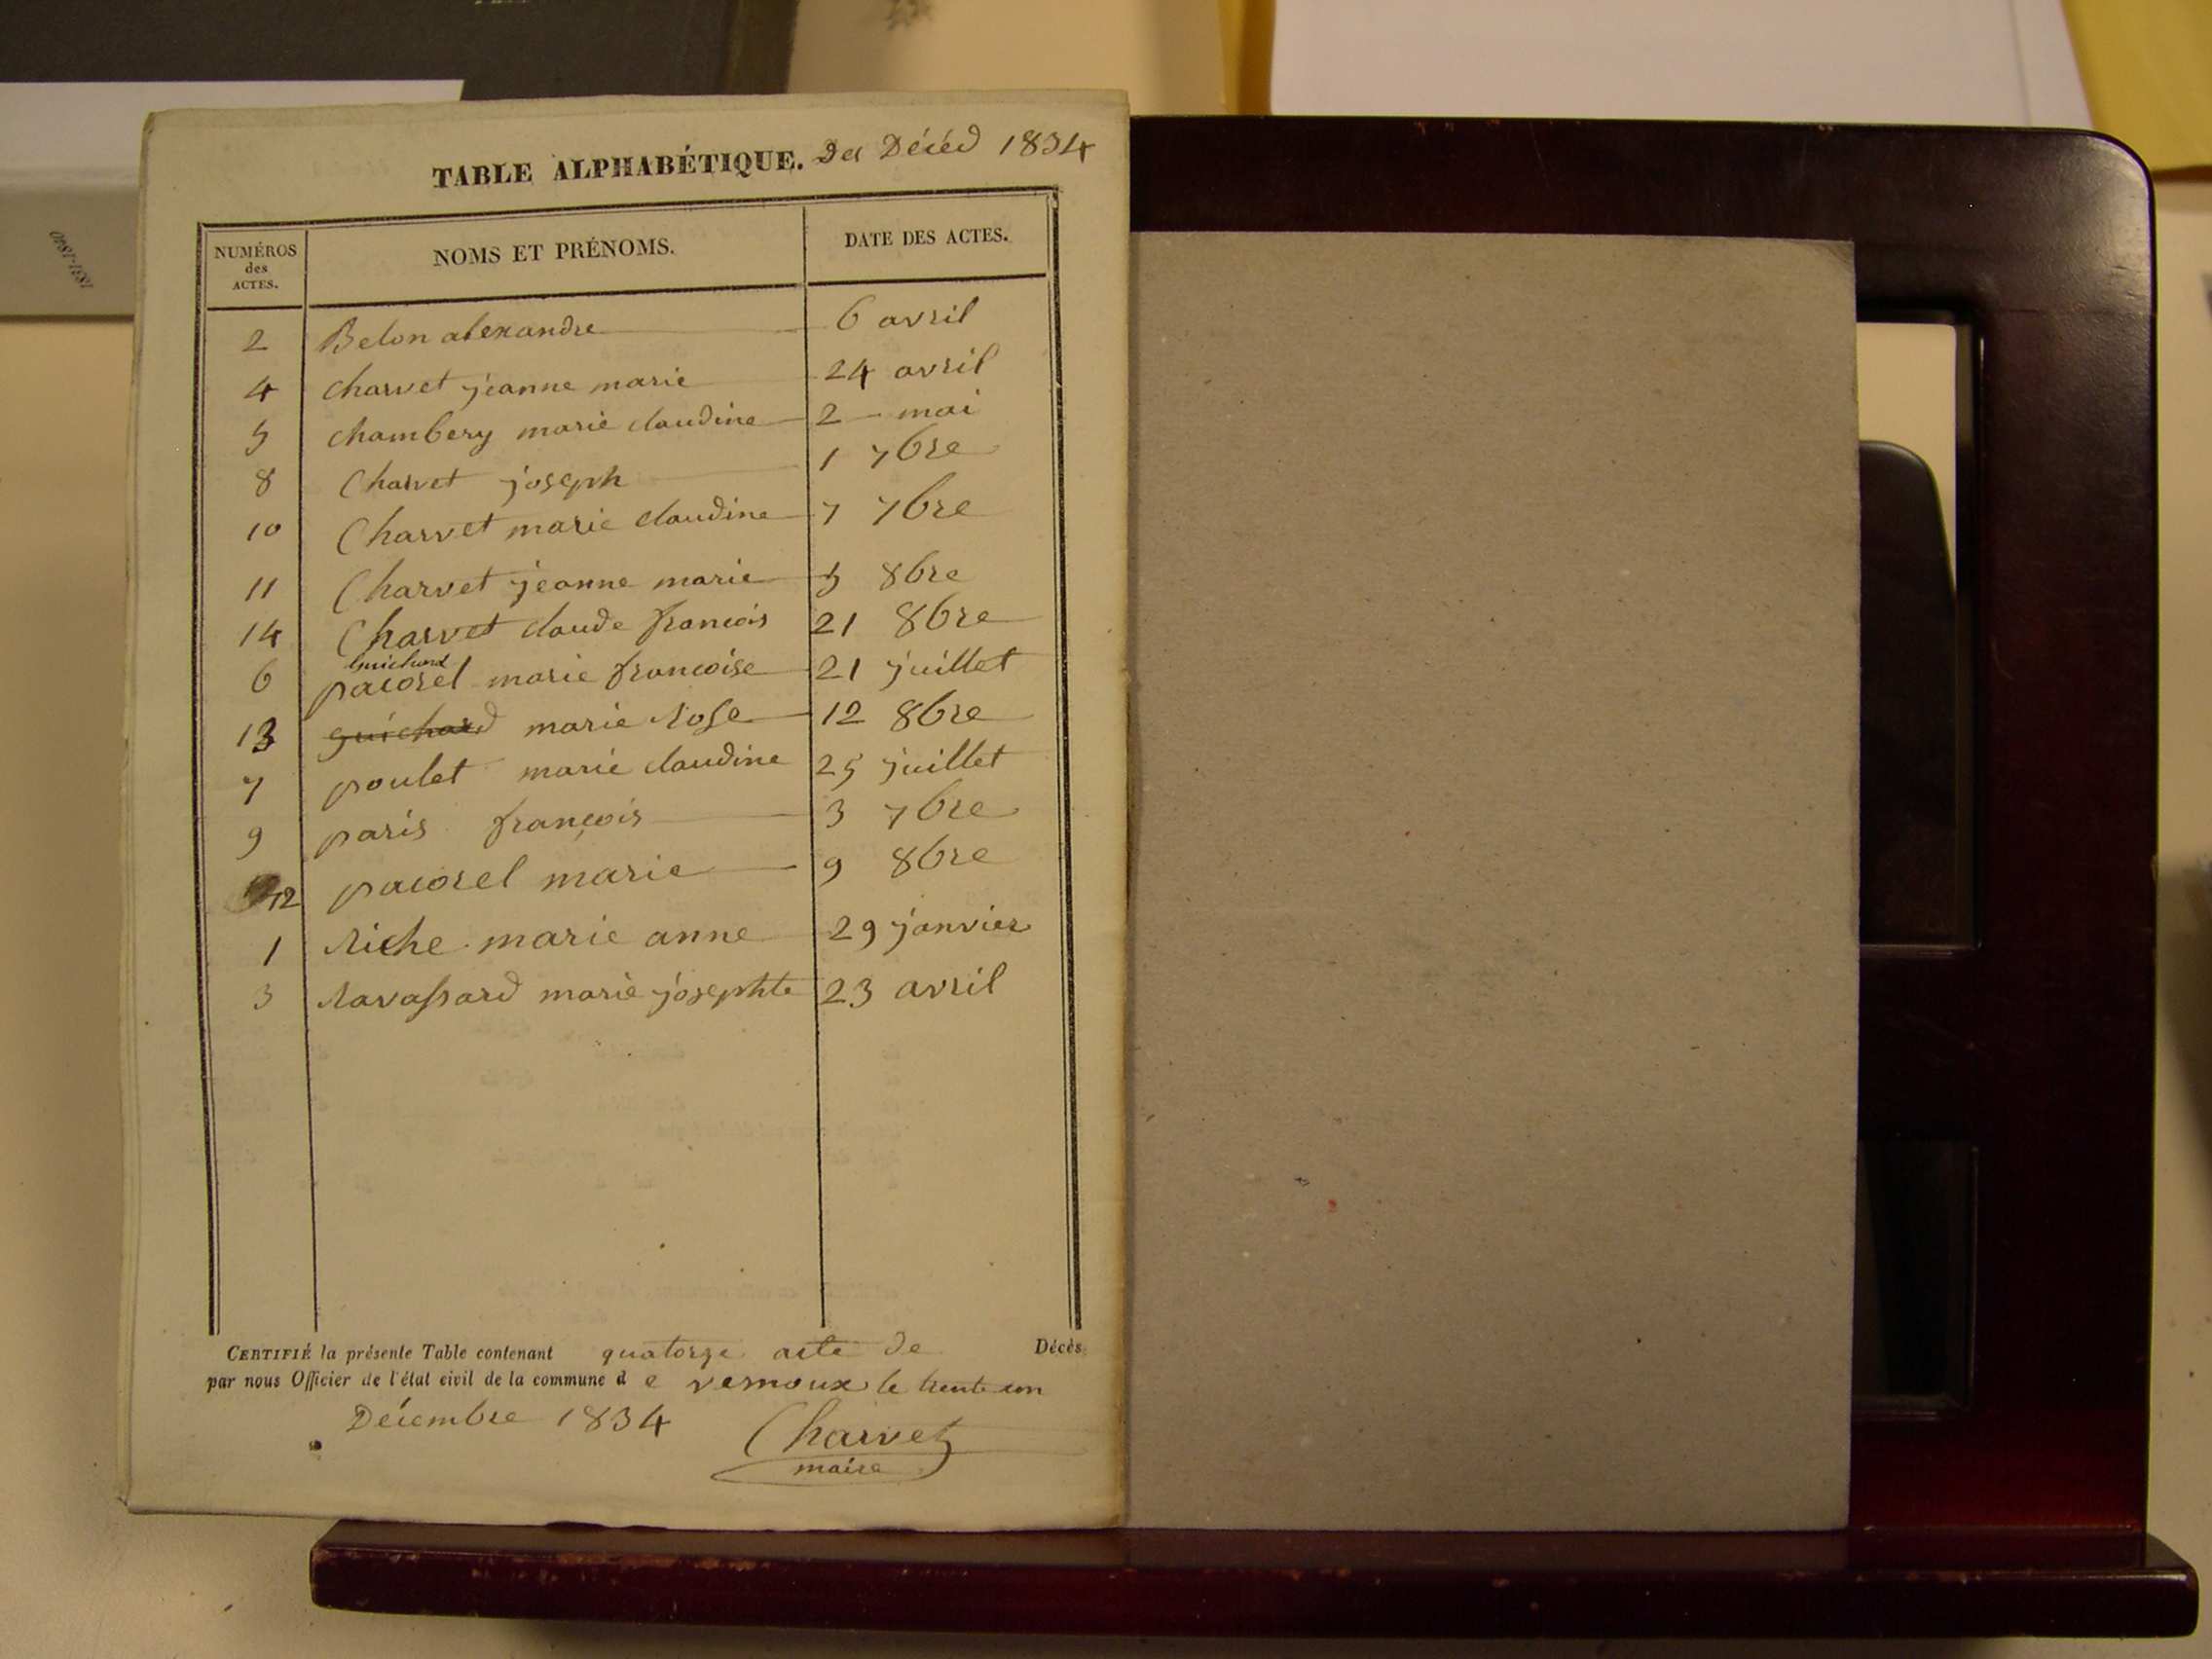 1831-1840
TABLE ALPHABÉTIQUE. Des Décéd 1834
NUMÉROS des ACTES. NOMS ET PRÉNOMS. DATE DES ACTES.
2 Belon alexandre 6 avril
4 charvet jeanne marie 24 avril
5 chambery marie claudine 2 mai
8 Charvet joseph 1 7bre
10 Charvet marie claudine 7 7bre
11 Charvet jeanne marie 5 8bre
14 Charvet claude francois 21 8bre
guichard
6 pacorel marie francoise 21 juillet
13 guichard marie rose 12 8bre
7 poulet marie claudine 25 juillet
9 paris françois 3 7bre
12 pacorel marie 9 8bre
1 riche marie anne 29 janvier
3 ravassard marie josephte 23 avril
CERTIFIÉ la présente Table contenant quatorze acte de Décès
par nous Officier de l'état civil de la commune d e vernoux le trente un
Décembre 1834
Charvet
maire